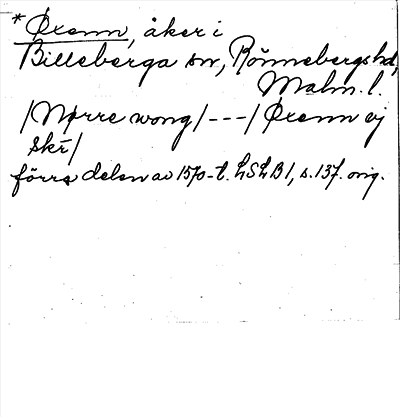 * Ørenn, åker i
Billeberga sn, Rönnebergs hd,
Malm. l.
/Nørre wong/ --- / Ørenn ej
skr/
förra delen av 1570-t. LSLB 1, s. 137. orig.